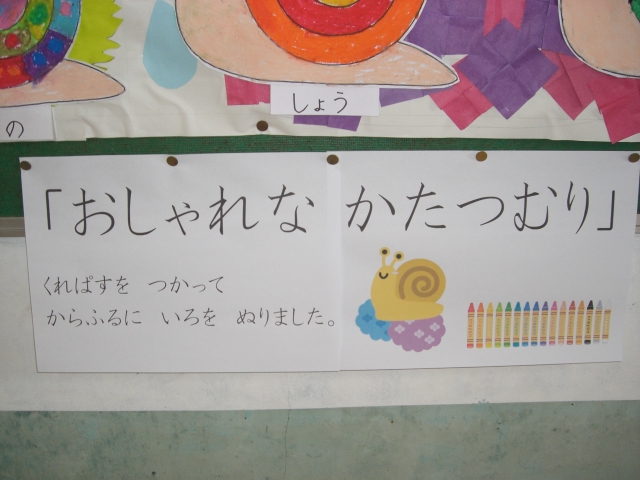 の
しょう
「おしゃれな かたつむり」
くれぱすを つかって
からふるに いろを ぬりました。